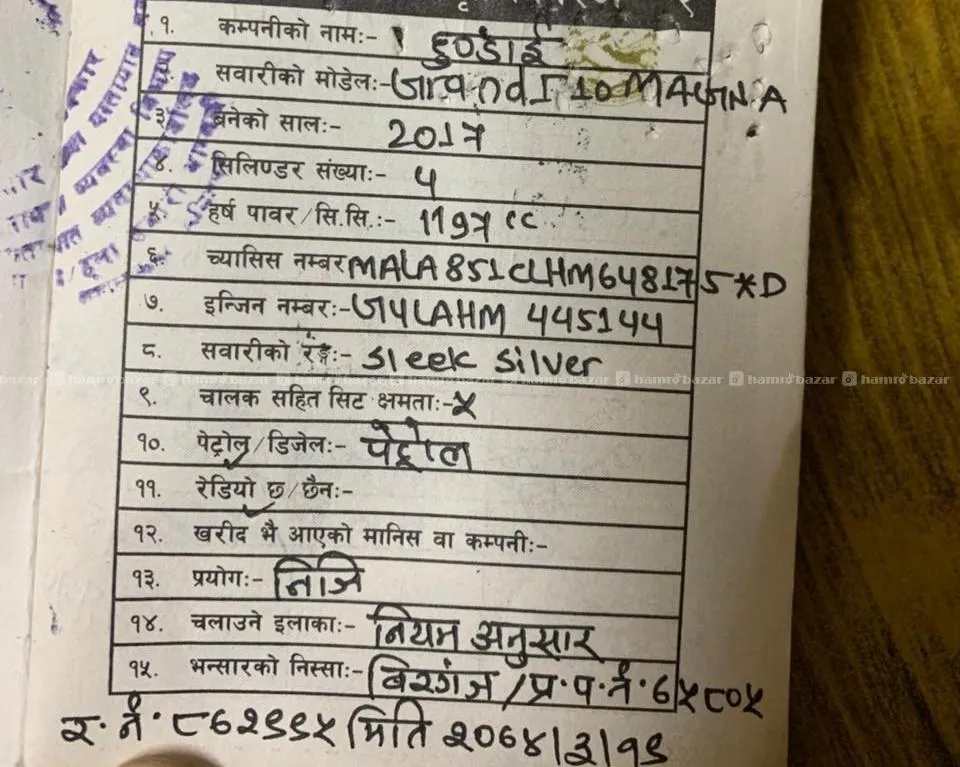 १. कम्पनीको नामः- हुण्डाई
सवारीको मोडेलः- Grand I 10 MAGNA
३. बनेको सालः- 2017
४. सिलिण्डर संख्याः- 4
५. हर्ष पावर/सि.सि.:- 1197 cc
६. च्यासिस नम्बर MALA851CLHM648175*D
७. इन्जिन नम्बरः- G4LAHM 445144
८. सवारीको रङ्गः- sleek silver
hamrobazar hamrobazar hamrobazar hamrobazar hamrobazar hamrobazar hamrobazar
९. चालक सहित सिट क्षमताः- ५
१०. पेट्रोल/डिजेलः- पेट्रोल
११. रेडियो छ/छैनः-
१२. खरीद भै आएको मानिस वा कम्पनीः-
१३. प्रयोगः- निजि
१४. चलाउने इलाकाः- नियम अनुसार
१५. भन्सारको निस्साः- बिरगंज/प्र.प.नं.
र.नं. मिति